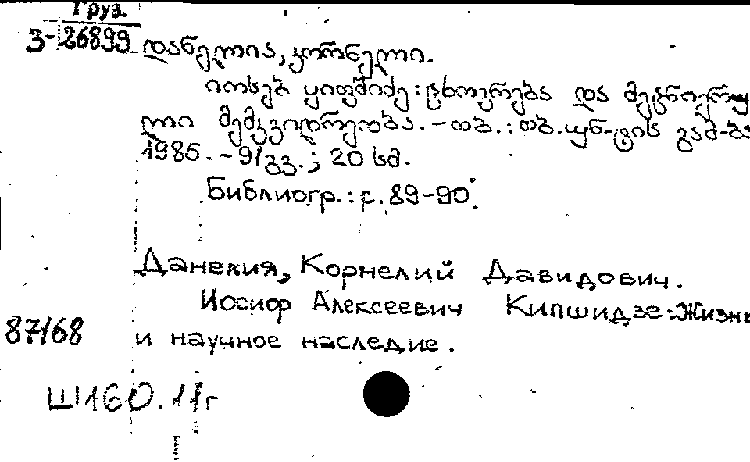 Груз.
З-26899
დანელია, კორნელი.
იოსებ ყიფშიძე: ცხოვრება და მეცნიერუ
ლი მემკვიდრეობა. - თბ.: თბ. უნ-ტის გამ-ბა
1985. - 91გვ.; 20 სმ.
Библиогр.: с. 89-90.
Данелия, Корнелий Давидович.
Иосиф Алексеевич Кипшидзе: Жизнь
87/68 и научное наследие.
Ш160.11г